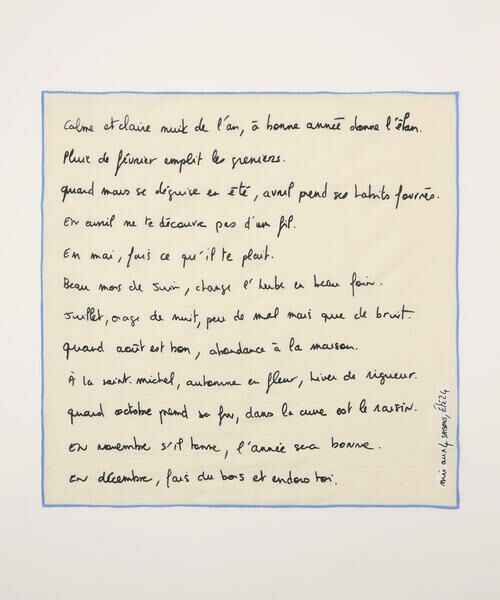 Calme et claire nuit de l'an, à bonne année donne l'élan.
Pluie de février emplit les greniers.
quand mars se déguise en été, avril prend ses habits fourrés.
En avril ne te découvre pas d'un fil.
En mai, fais ce qu'il te plait.
Beau mois de Juin, change l'herbe en beau foin.
Juillet, orage de nuit, peu de mal mais que de bruit.
quand août est bon, abondance à la maison.
À la saint.michel, automne en fleur, hiver de rigueur.
quand octobre prend sa fin, dans la cuve est le raisin.
en novembre s'il tonne, l'année sera bonne.
en décembre, fais du bois et endors toi.
mii aux 4 saisons, Été 24